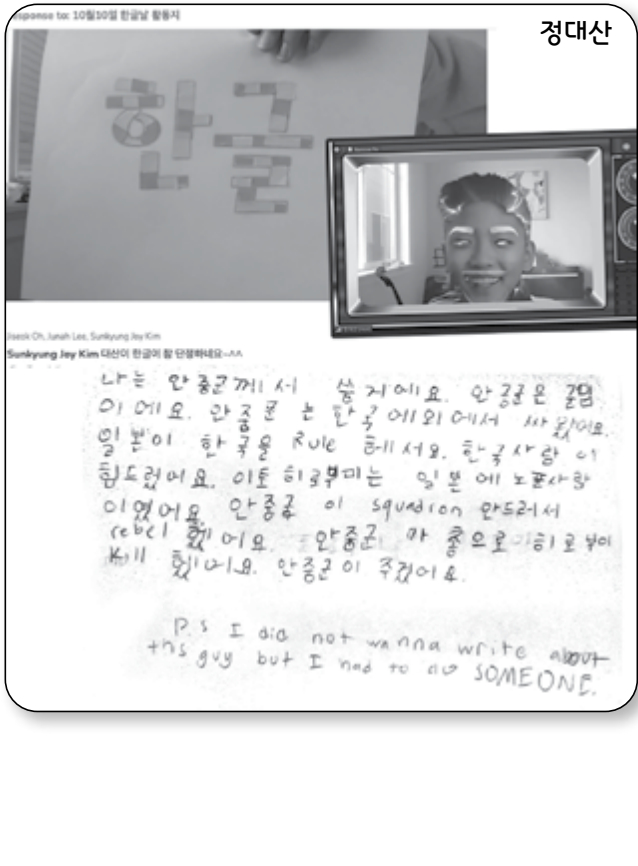 esponse to: 10월10일 한글날 활동지
정대산
한글
Jiseok Oh, Junah Lee, Sunkyung Joy Kim
Sunkyung Joy Kim 대산이 한글이 참 단정하네요~^^
나는 안중군께서 쓸거에요. 안중군은
이에요. 안중군는 한국에외에서 싸웠어요.
일본이 한국을 Rule 헤에서요. 한국사람이
힘드렀어요. 이토 히로부미는 일본에 노픈사람
이였어요 안중군이 squadron 만드러서
rebel 했어요. 안중군 마 총으로 히로부이
Kill 했어요. 안중군이 주겄어요.
P.S I did not wanna write about
ths guy but I had to do SOMEONE.